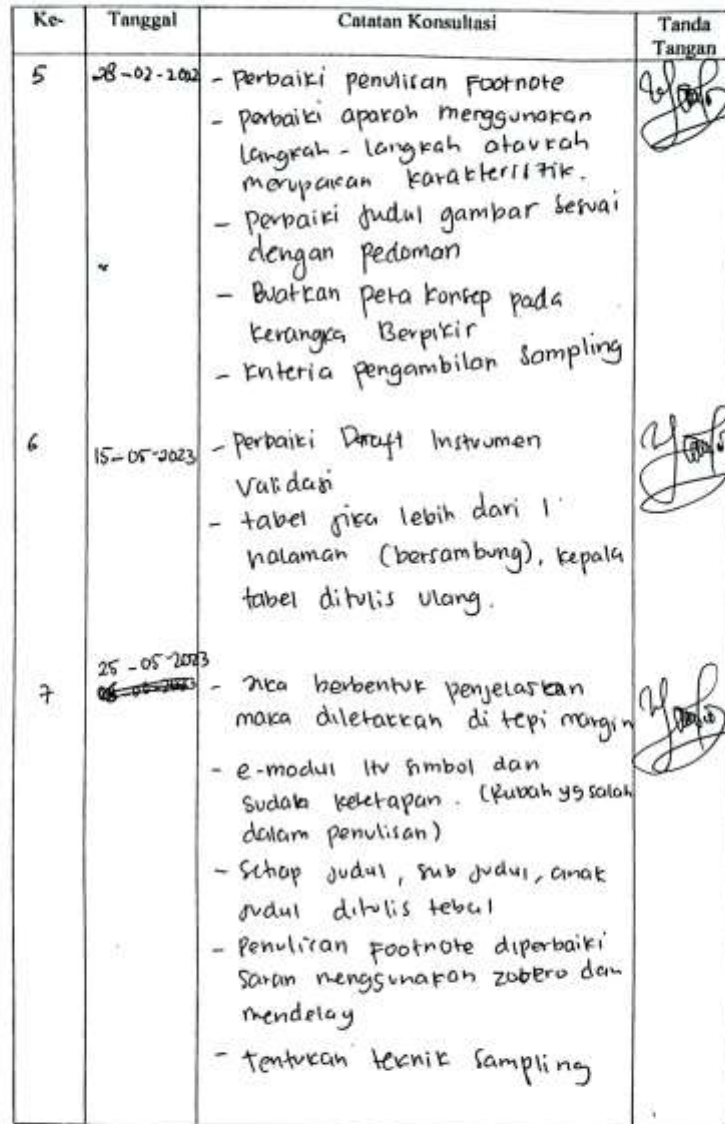 Ke- Tanggal Catatan Konsultasi Tanda Tangan
5 28-02-2022 - Perbaiki penulisan Footnote
- perbaiki apakah menggunakan
langkah - langkah ataukah
merupakan karakteristik.
- Perbaiki judul gambar sesuai
dengan pedoman
- Buatkan peta konsep pada
kerangka Berpikir
- Kriteria pengambilan sampling
6 15-05-2023 - Perbaiki Draft Instrumen
Validasi
- tabel jika lebih dari 1
halaman (bersambung), kepala
tabel ditulis ulang.
7 25-05-2023 - Jika berbentuk penjelaskan
maka diletakkan di tepi margin
- e-modul itu simbol dan
sudah ketetapan. (Rubah yg salah
dalam penulisan)
- Setiap judul, sub judul, anak
judul ditulis tebal
- Penulisan Footnote diperbaiki
saran menggunakan zotero dan
mendelay
- Tentukan teknik sampling